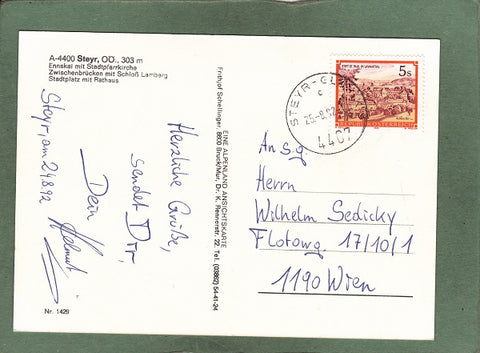 A-4400 Steyr, OÖ., 303 m
Ennskai mit Stadtpfarrkirche
Zwischenbrücken mit Schloß Lamberg
Stadtplatz mit Rathaus
Steyr, am 24.8.92
Herzliche Grüße,
sendet Dir,
Dein
Helmut
Nr. 1429
EINE ALPENLAND ANSICHTSKARTE
Frithjof Schellinger, 8600 Bruck/Mur, Dr. K. Rennerstr. 22, Tel. (03862) 54-41-24
5s
REPUBLIK ÖSTERREICH
STEYR-GL
c
25.-8.92
4407
An s.g.
Herrn
Wilhelm Sedicky
Flotowg. 17/10/1
1190 Wien